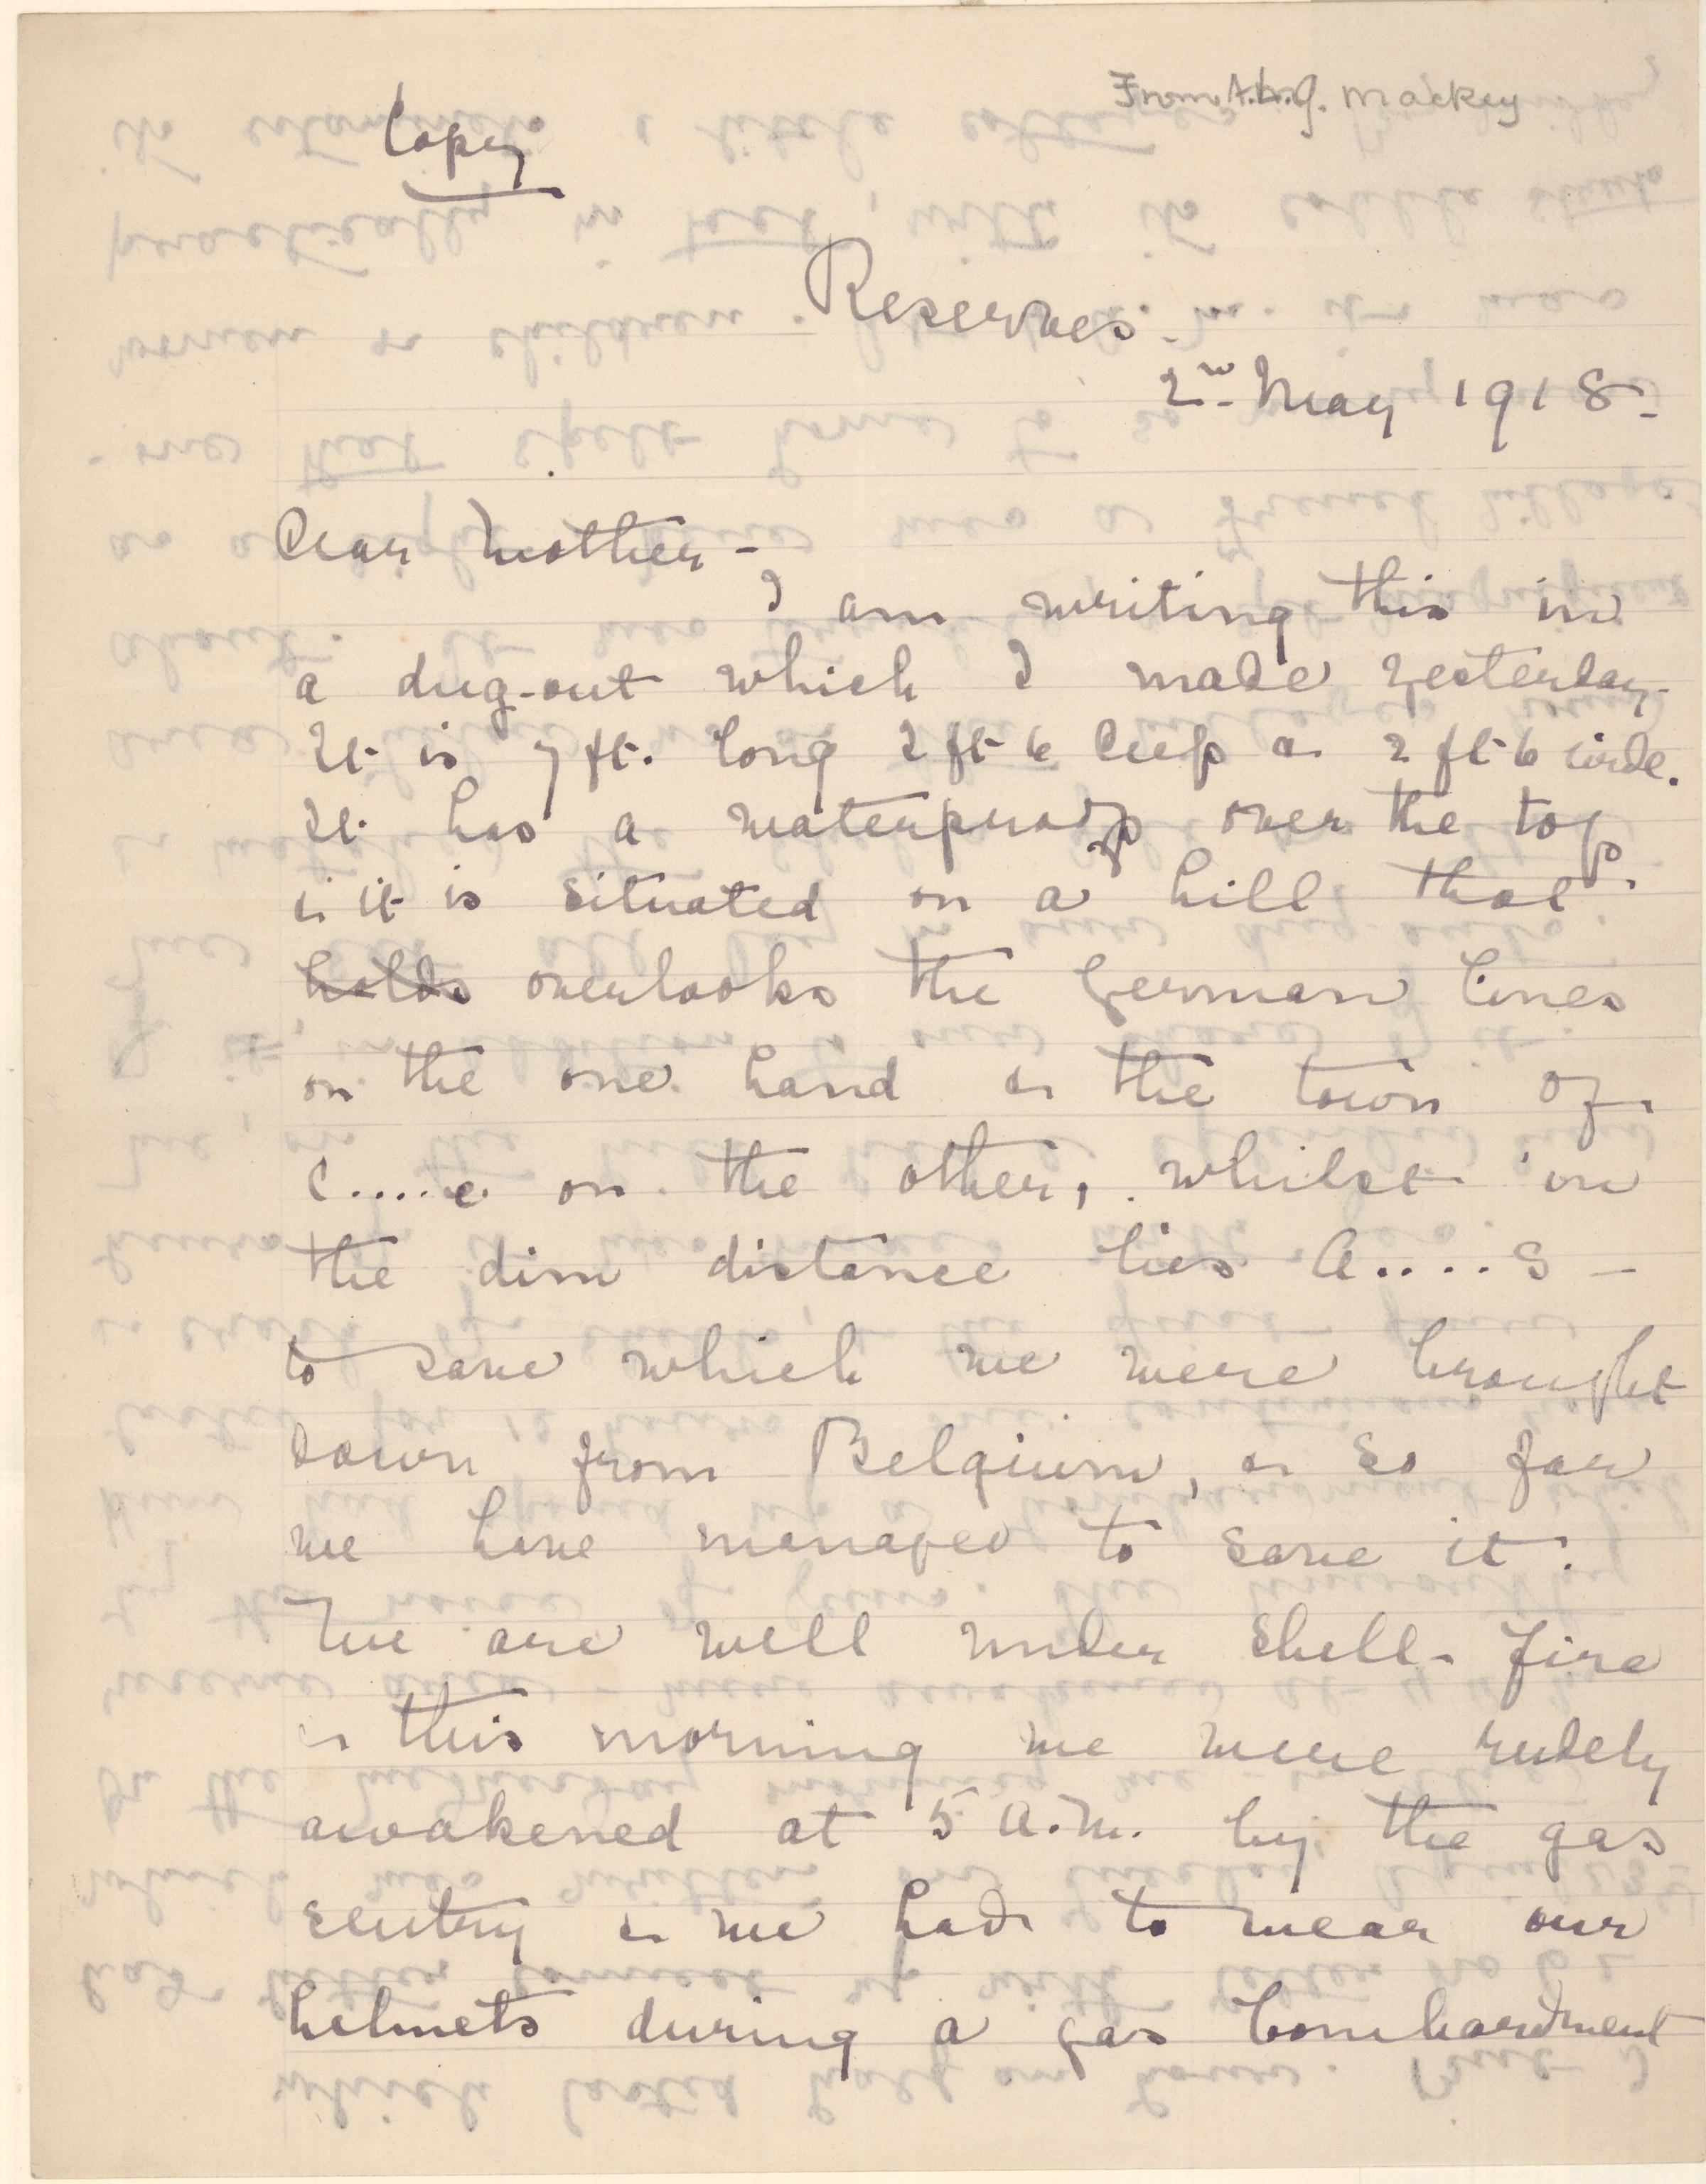 From A.H.G. Mackey
Copy
Reserves.
2nd May 1918.
Dear Mother -
I am writing this in
a dug-out which I made yesterday.
It is 7 ft. long 2 ft 6 deep & 2 ft 6 wide.
It has a waterproof over the top
& it is situated on a hill that
holds overlooks the German lines
on the one hand & the town of
C.....e on the other, whilst in
the dim distance lies A....s -
to save which we were brought
down from Belgium, & so far
we have managed to save it.
We are well under shell-fire
& this morning we were rudely
awakened at 5 A.M. by the gas
sentry & we had to wear our
helmets during a gas bombardment